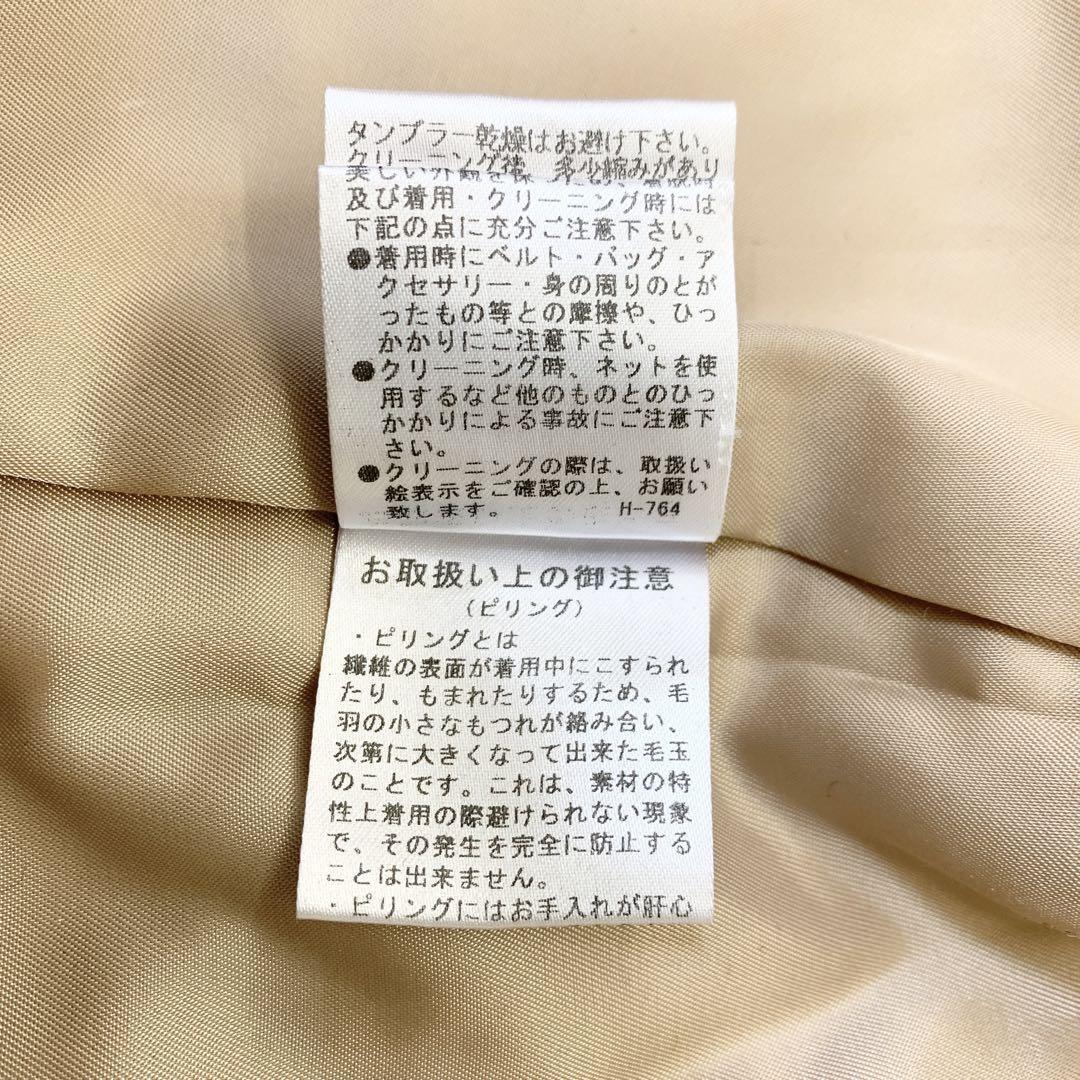 タンブラー乾燥はお避け下さい。
クリーニング後、多少縮みがあり
美しい外観を保
及び着用・クリーニング時には
下記の点に充分ご注意下さい。
●着用時にベルト・バッグ・ア
クセサリー・身の周りのとが
ったもの等との摩擦や、ひっ
かかりにご注意下さい。
●クリーニング時、ネットを使
用するなど他のものとのひっ
かかりによる事故にご注意下
さい。
●クリーニングの際は、取扱い
絵表示をご確認の上、お願い
致します。 H-764
お取扱い上の御注意
(ピリング)
・ピリングとは
繊維の表面が着用中にこすられ
たり、もまれたりするため、毛
羽の小さなもつれが絡み合い、
次第に大きくなって出来た毛玉
のことです。これは、素材の特
性上着用の際避けられない現象
で、その発生を完全に防止する
ことは出来ません。
・ピリングにはお手入れが肝心